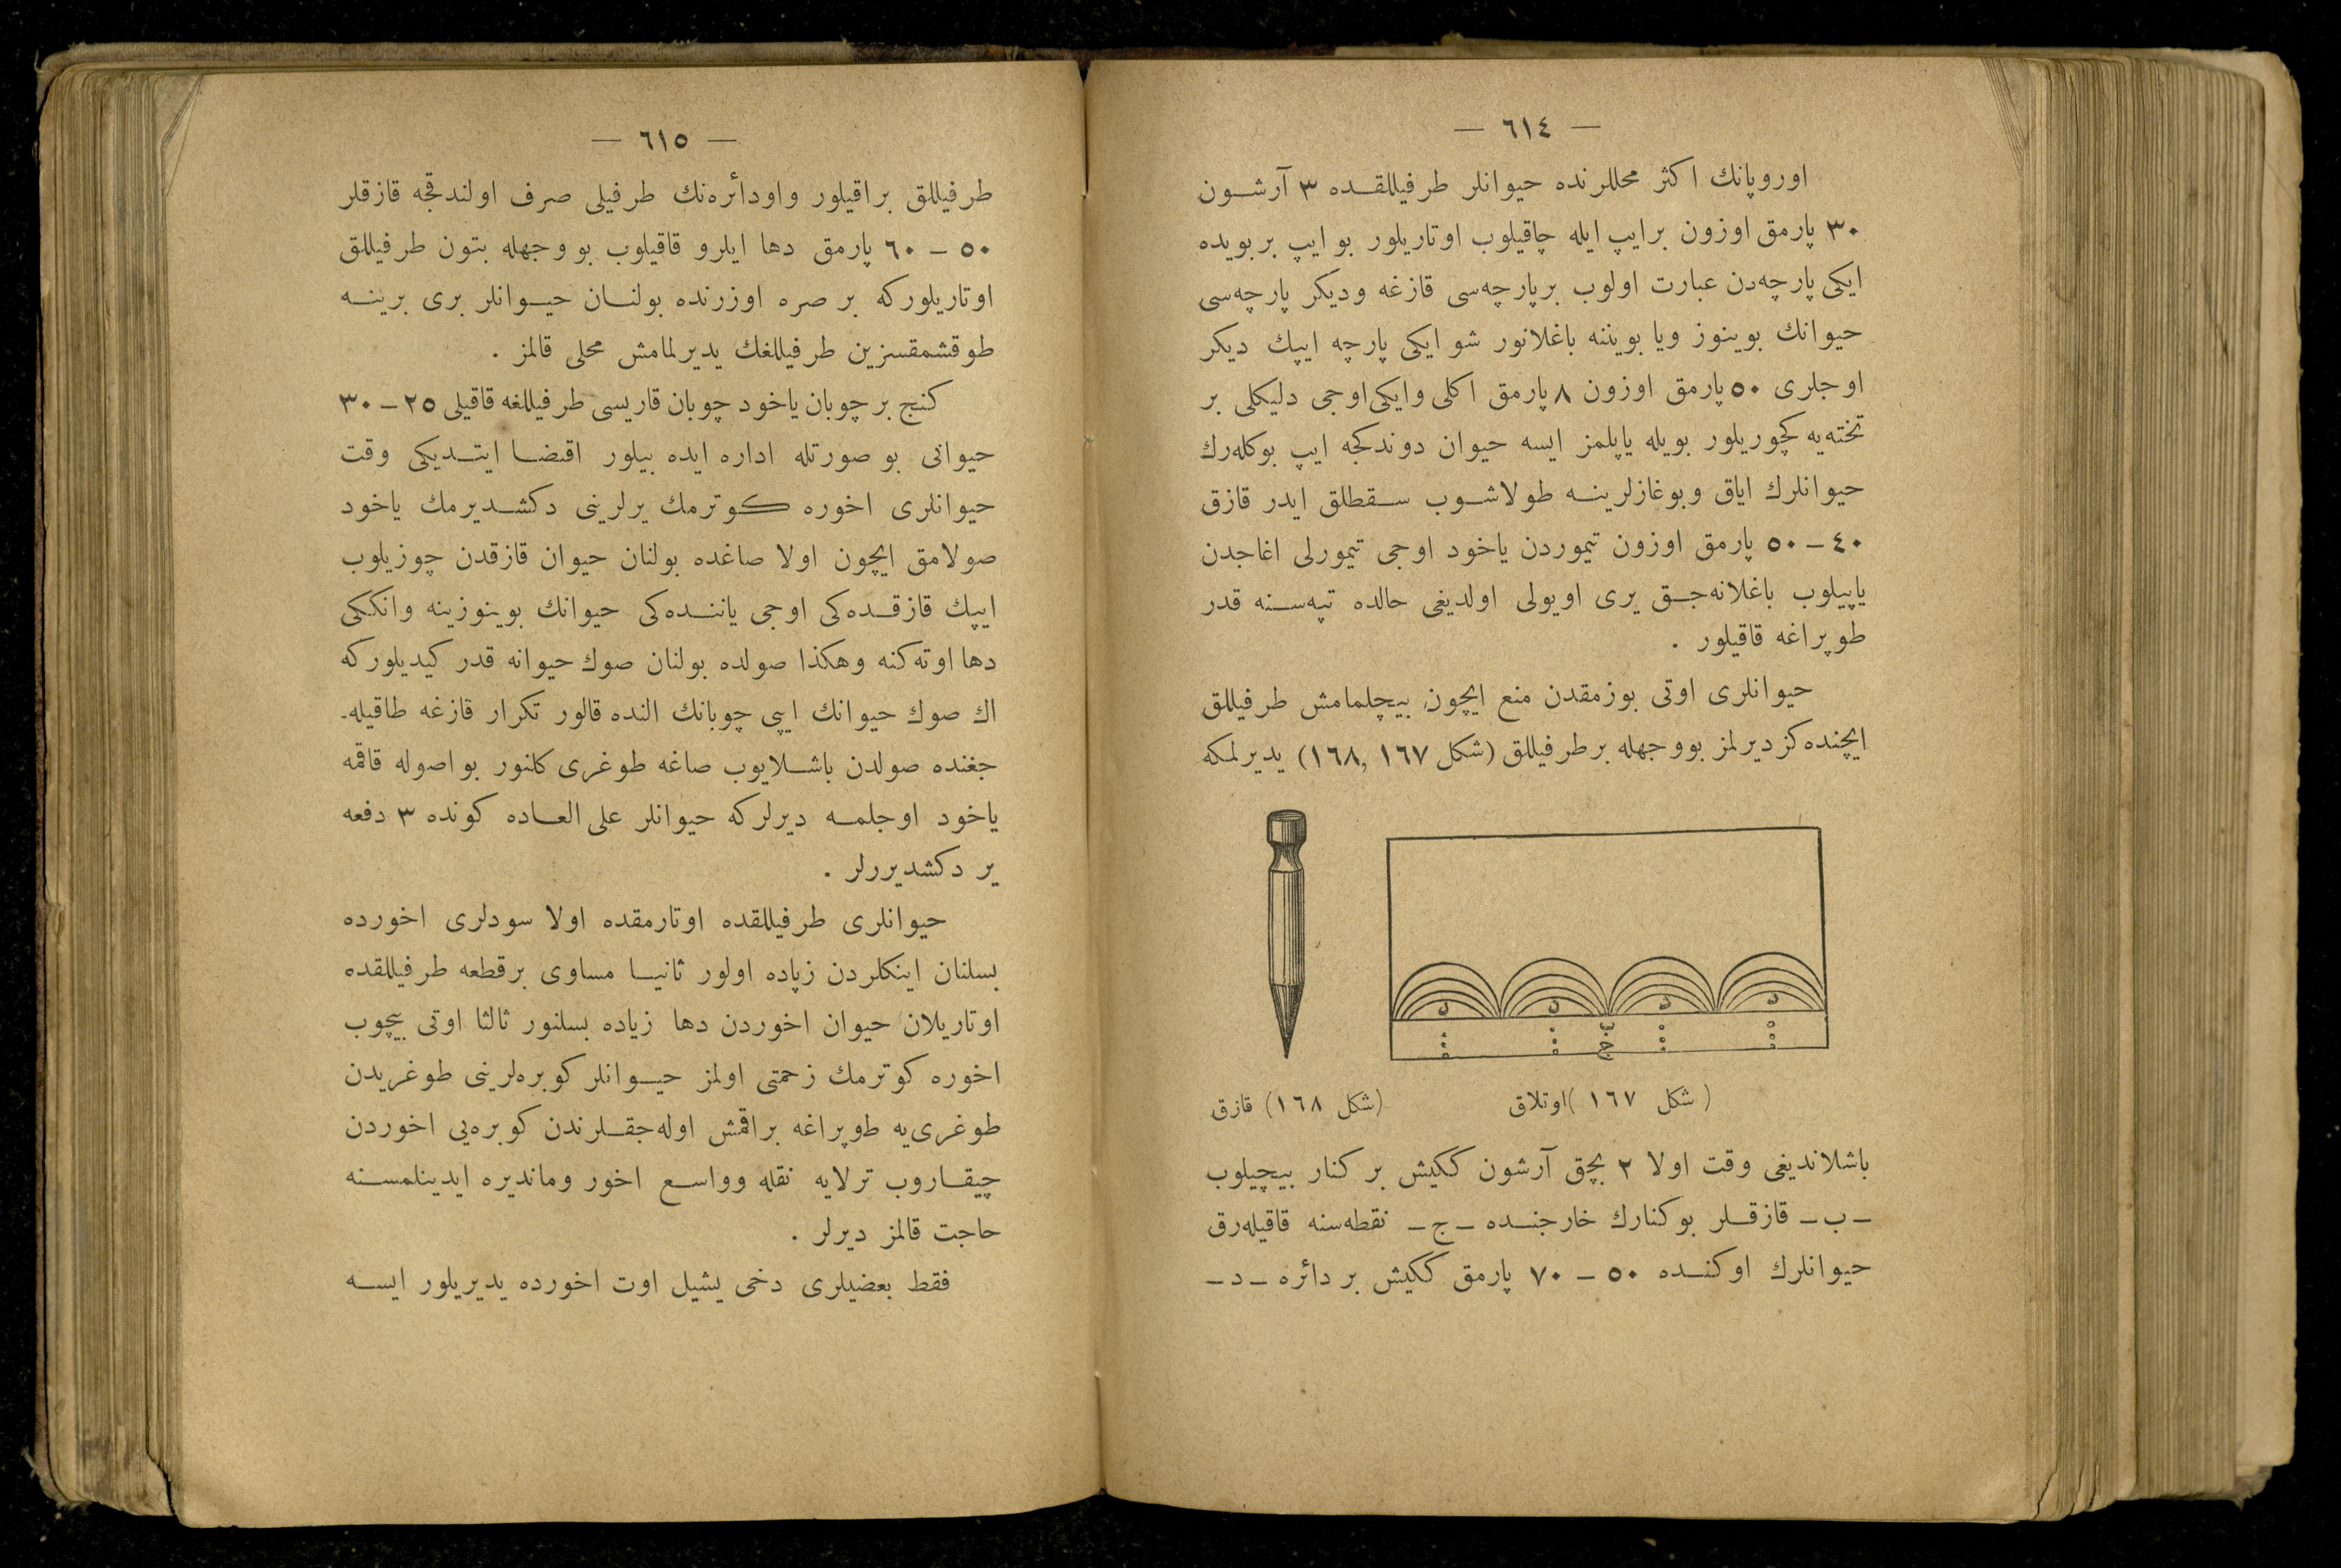 — ٦١٤ —
اوروپانك اكثر محللرنده حیوانلر طرفیللقده ٣ آرشون
٣٠ پارمق اوزون برایپ ایله چاقیلوب اوتاریلور بو ایپ بر بویده
ایكی پارچه‌دن عبارت اولوب برپارچه‌سی قازغه ودیكر پارچه‌سی
حیوانك بوینوز ویا بویننه باغلانور شو ایكی پارچه ایپك دیكر
اوجلری ٥٠ پارمق اوزون ٨ پارمق اكلی وایكی اوجی دلیكلی بر
تخته‌یه كچوریلور بویله یاپلمز ایسه حیوان دوندكجه ایپ بوكله‌رك
حیوانلرك ایاق وبوغازلرینه طولاشوب سقطلق ایدر قازق
٤٠ – ٥٠ پارمق اوزون تیموردن یاخود اوجی تیمورلی اغاجدن
یاپیلوب باغلانه‌جق یری اویولی اولدیغی حالده تپه‌سنه قدر
طوپراغه قاقیلور .
حیوانلری اوتی بوزمقدن منع ایچون بیچلمامش طرفیللق
ایچنده كزدیرلمز بووجهله برطرفیللق (شكل ١٦٧ ,١٦٨) یدیرلمكه
د د د د
ب
ج
(شكل ١٦٧ )اوتلاق
(شكل ١٦٨) قازق
باشلاندیغی وقت اولا ٢ بچق آرشون ككیش بر كنار بیچیلوب
– ب – قازقلر بو كنارك خارجنده – ج – نقطه‌سنه قاقیله‌رق
حیوانلرك اوكنده ٥٠ – ٧٠ پارمق ككیش بر دائره – د –
— ٦١٥ —
طرفیللق براقیلور واودائره‌نك طرفیلی صرف اولندقجه قازقلر
٥٠ – ٦٠ پارمق دها ایلرو قاقیلوب بو وجهله بتون طرفیللق
اوتاریلوركه بر صره اوزرنده بولنان حیوانلر بری برینه
طوقشمقسزین طرفیللغك یدیرلمامش محلی قالمز .
كنج بر چوبان یاخود چوبان قاریسی طرفیللغه قاقیلی ٢٥ – ٣٠
حیوانی بو صورتله اداره ایده بیلور اقتضا ایتدیكی وقت
حیوانلری اخوره كوترمك یرلرینی دكشدیرمك یاخود
صولامق ایچون اولا صاغده بولنان حیوان قازقدن چوزیلوب
ایپك قازقده‌كی اوجی یاننده‌كی حیوانك بوینوزینه وانككی
دها اوته‌كنه وهكذا صولده بولنان صوك حیوانه قدر كیدیلوركه
اك صوك حیوانك ایپی چوبانك النده قالور تكرار قازغه طاقیله‌-
جغنده صولدن باشلایوب صاغه طوغری كلنور بو اصوله قاقمه
یاخود اوجلمه دیرلركه حیوانلر علی العاده كونده ٣ دفعه
یر دكشدیررلر .
حیوانلری طرفیللقده اوتارمقده اولا سودلری اخورده
بسلنان اینكلردن زیاده اولور ثانیا مساوی برقطعه طرفیللقده
اوتاریلان حیوان اخوردن دها زیاده بسلنور ثالثا اوتی بیچوب
اخوره كوترمك زحمتی اولمز حیوانلر كوبره‌لرینی طوغریدن
طوغری‌یه طوپراغه براقمش اوله‌جقلرندن كوبره‌یی اخوردن
چیقاروب ترلایه نقله وواسع اخور وماندیره ایدینلمسنه
حاجت قالمز دیرلر .
فقط بعضیلری دخی یشیل اوت اخورده یدیریلور ایسه